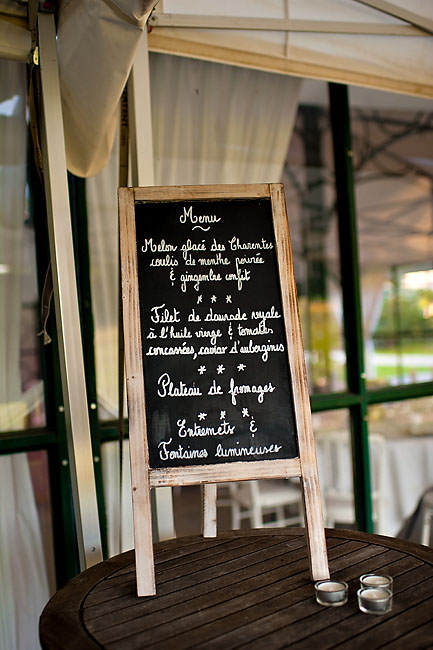 Menu
Melon glacé des Charentes
coulis de menthe poivrée
& gingembre confit
* * *
Filet de daurade royale
à l'huile vierge & tomates
concassées, caviar d'aubergines
* * *
Plateau de fromages
* * *
Entremets &
Fontaines lumineuses